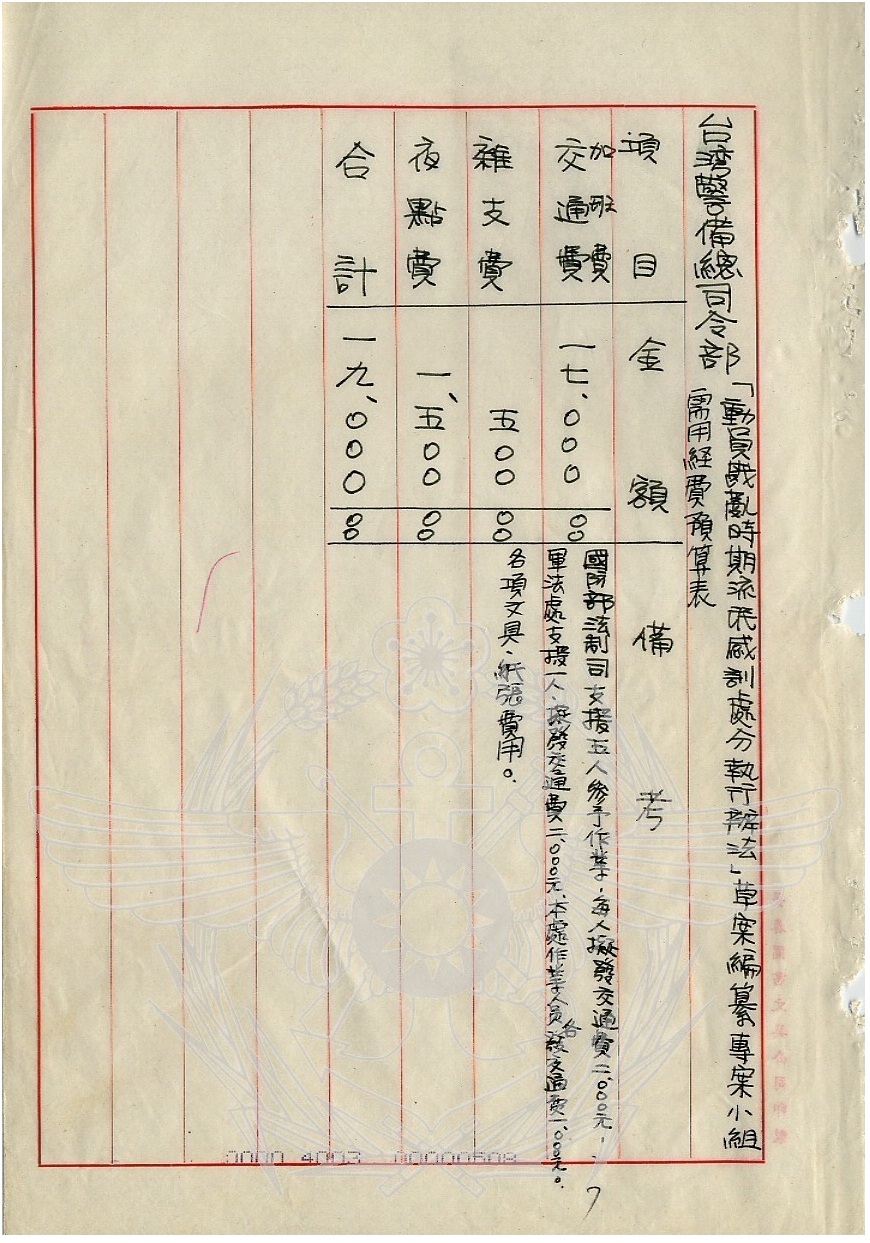 台湾警備總司令部「動員戡亂時期流氓感訓處分執行辦法」草案編纂專案小組
需用経費預算表
項目 金額 備考
加班費
交通費 一七、000 00 國防部法制司支援五人參予作業,每人擬發交通費二、000元,
軍法處支援一人,擬發交通費二、000元、本處作業人員各發交通費一、000元。
雜支費 五00 00 各項文具、紙張費用。
夜點費 一、五00 00
合計 一九、000 00
0000 4003 00000608